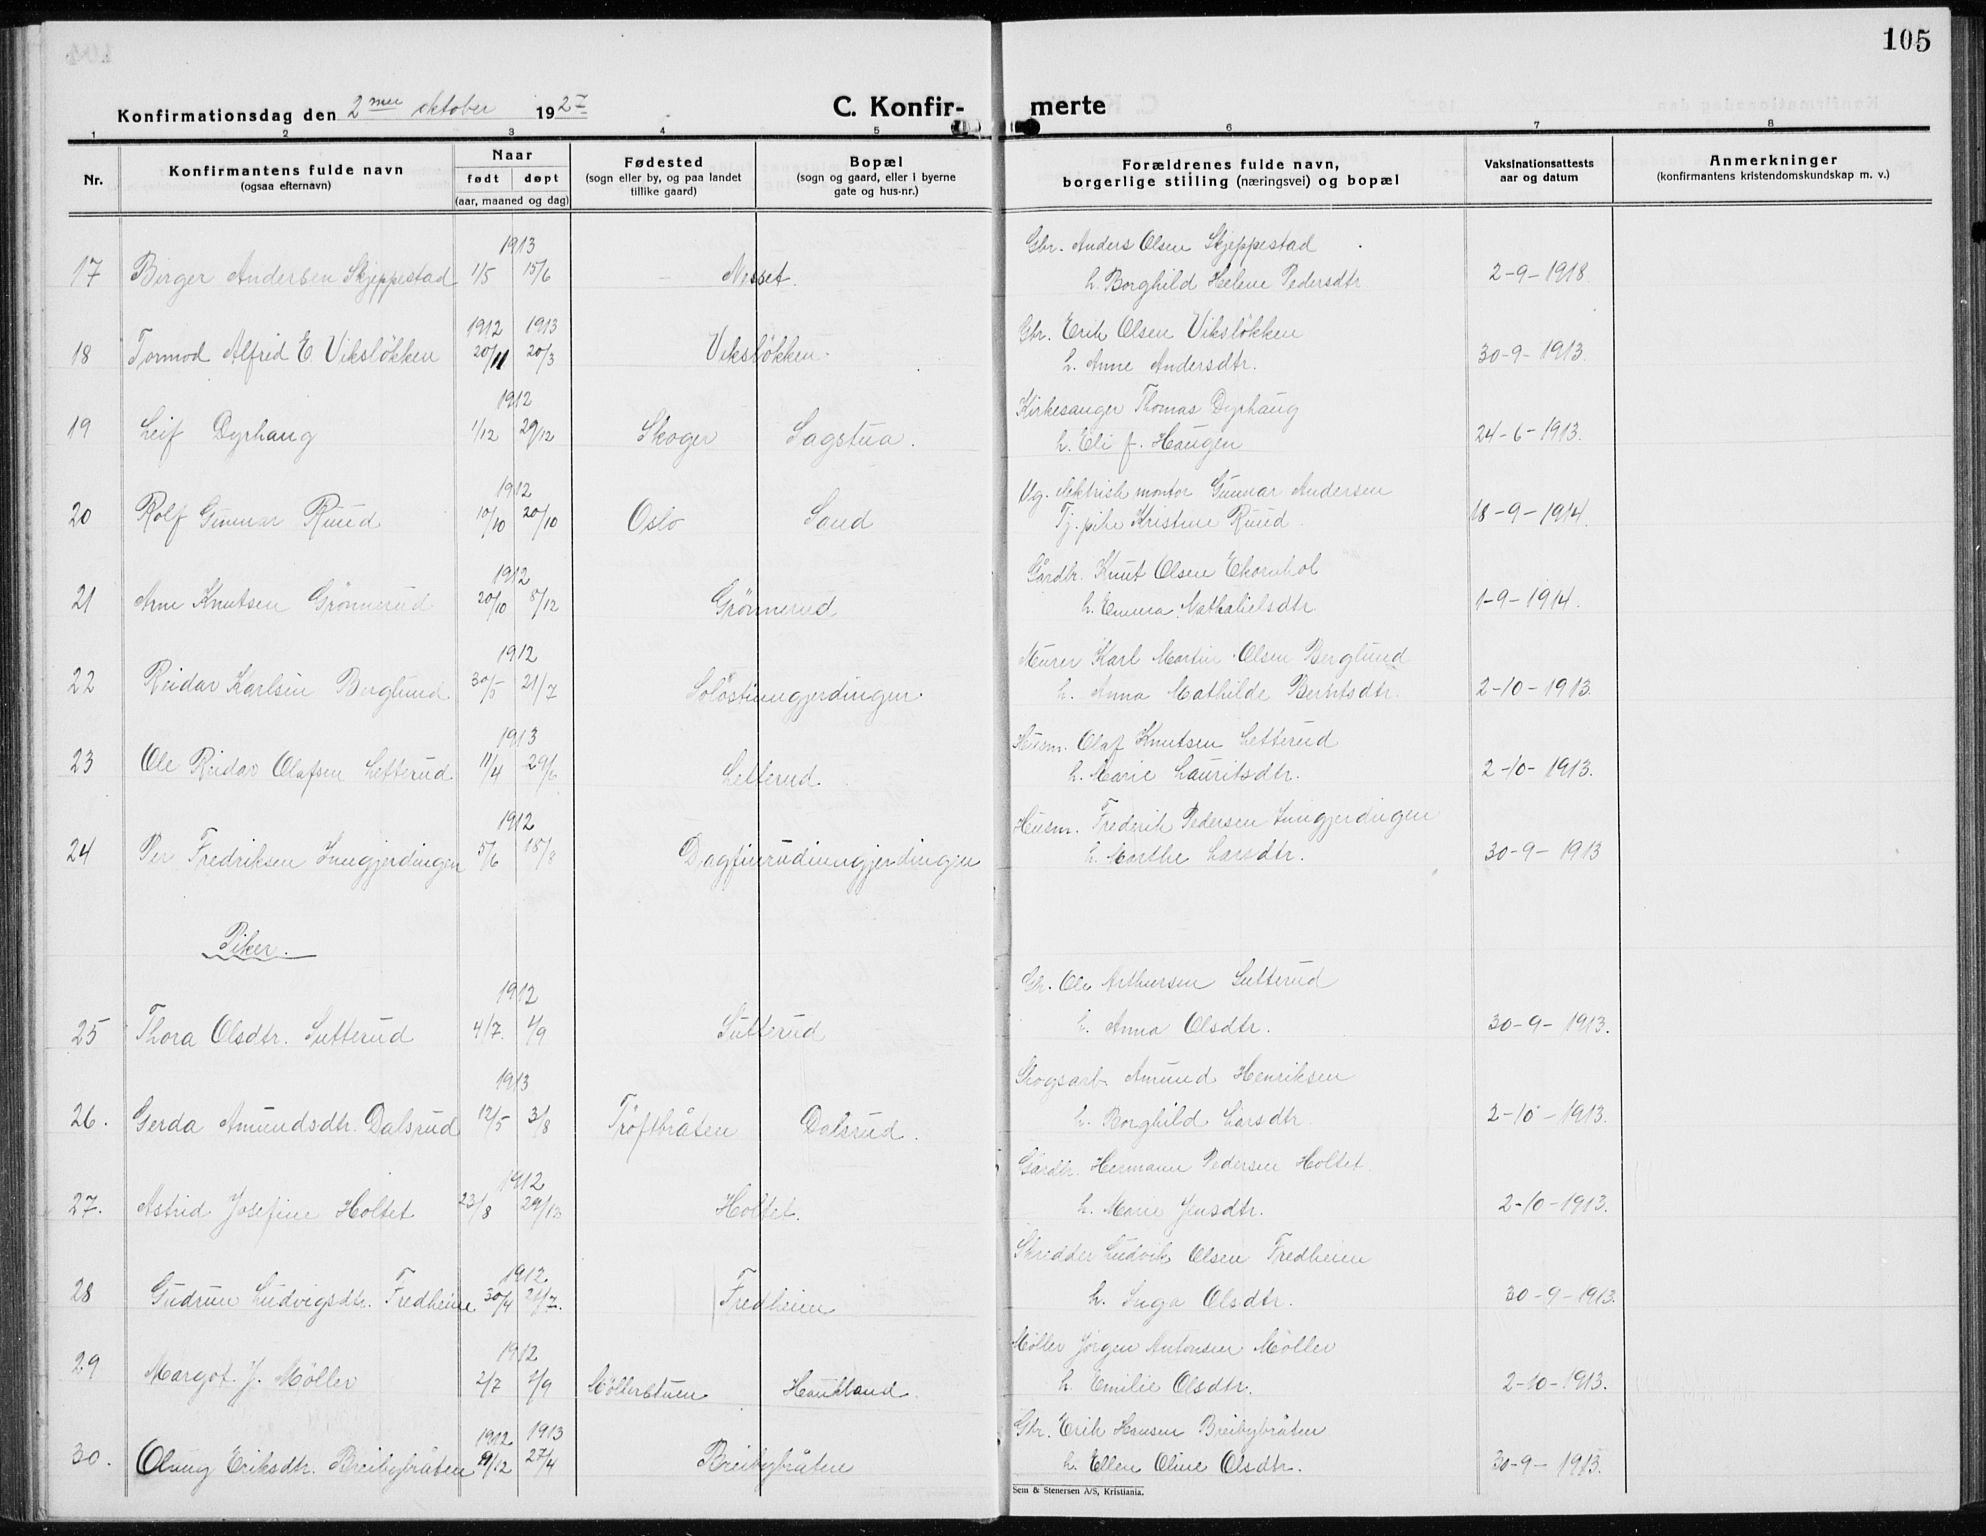 105
Konfirmationsdag den 2 men oktober 1927
C. Konfirmerte
1 2 3 4 5 6 7 8
Nr.
Konfirmantens fulde navn
(ogsaa efternavn)
Naar
født døpt
(aar, maaned og dag)
Fødested
(sogn eller by, og paa landet
tillike gaard)
Bopæl
(sogn og gaard, eller i byerne
gate og hus-nr.)
Forældrenes fulde navn,
borgerlige stilling (næringsvei) og bopæl
Vaksinationsattests
aar og datum
Anmerkninger
(konfirmantens kristendomskundskap m. v.)
1913 Gbr. Anders Olsen Skjeppestad
17 Birger Andersen Skjeppestad 1/5 15/6 Nesset. h. Borghild Helene Pedersdtr 2-9-1918
1912 1913 Gbr. Erik Olsen Vikslökken
18 Tormod Alfred E. Vikslökken 20/11 20/3 Vikslökken. h. Anne Andersdtr. 30-9-1913.
1912 Kirkesanger Thomas Dyrhaug
19 Leif Dyrhaug 1/12 29/12 Skoger Sagstua. h. Eli f. Haugen 24-6-1913.
1912 Ug. elektrisk montör Gunnar Andersen
20 Rolf Gunnar Ruud 10/10 20/10 Oslo Sand Tj. pike Kristine Ruud 18-9-1914.
1912 Gårdbr. Knut Olsen Ekornhol
21 Arne Knutsen Grönnerud 20/10 8/12 Grönnerud h. Emma Nathalielsdtr 1-9-1914.
1912 Murer Karl Martin Olsen Berglund
22 Reidar Karlsen Berglund 30/5 21/7 Solöstinngjerdingen h. Anna Mathilde Berntsdtr. 2-10-1913.
1913 Husm. Olaf Knutsen Letterud
23 Ole Reidar Olafsen Letterud 11/4 29/6 Letterud. h. Marie Lauritsdtr. 2-10-1913.
1912 Husm. Frederik Pedersen Inngjerdingen
24 Per Fredriksen Inngjerdingen 5/6 18/8 Dagfinrudinngjerdingen h. Marthe Larsdtr. 30-9-1913
Piker.
1912 Gbr. Ole Arthursen Sutterud
25 Thora Olsdtr. Sutterud 4/7. 1/9 Sutterud h. Anna Olsdtr. 30-9-1913.
1913 Skogsarb. Amund Henriksen
26. Gerda Amundsdtr. Dalsrud 12/5 3/8 Tröftbråten Dalsrud. h. Borghild Larsdtr. 2-10-1913.
1912 Gårdbr. Hermann Pedersen Holtet.
27. Astrid Josefine Holtet 23/8 29/12 Holtet. h. Marie Jensdtr. 2-10-1913.
1912 Skredder Ludvik Olsen Fredheim
28 Gudrun Ludvigsdtr. Fredheim 30/4 21/7. Fredheim h. Inga Olsdtr. 30-9-1913.
1912 Möller Jörgen Antonsen Möller
29 Margot. J. Möller 2/7 1/9 Möllerstuen Haukland. h. Emilie Olsdtr. 2-10-1913.
1912 1913 Gbr. Erik Hansen Breibybråten
30. Olaug Eriksdtr. Breibybråten 9/12 27/4 Breibybråten h. Ellen Oline Olsdtr. 30-9-1913.
Sem & Stenersen A/S, Kristiania.